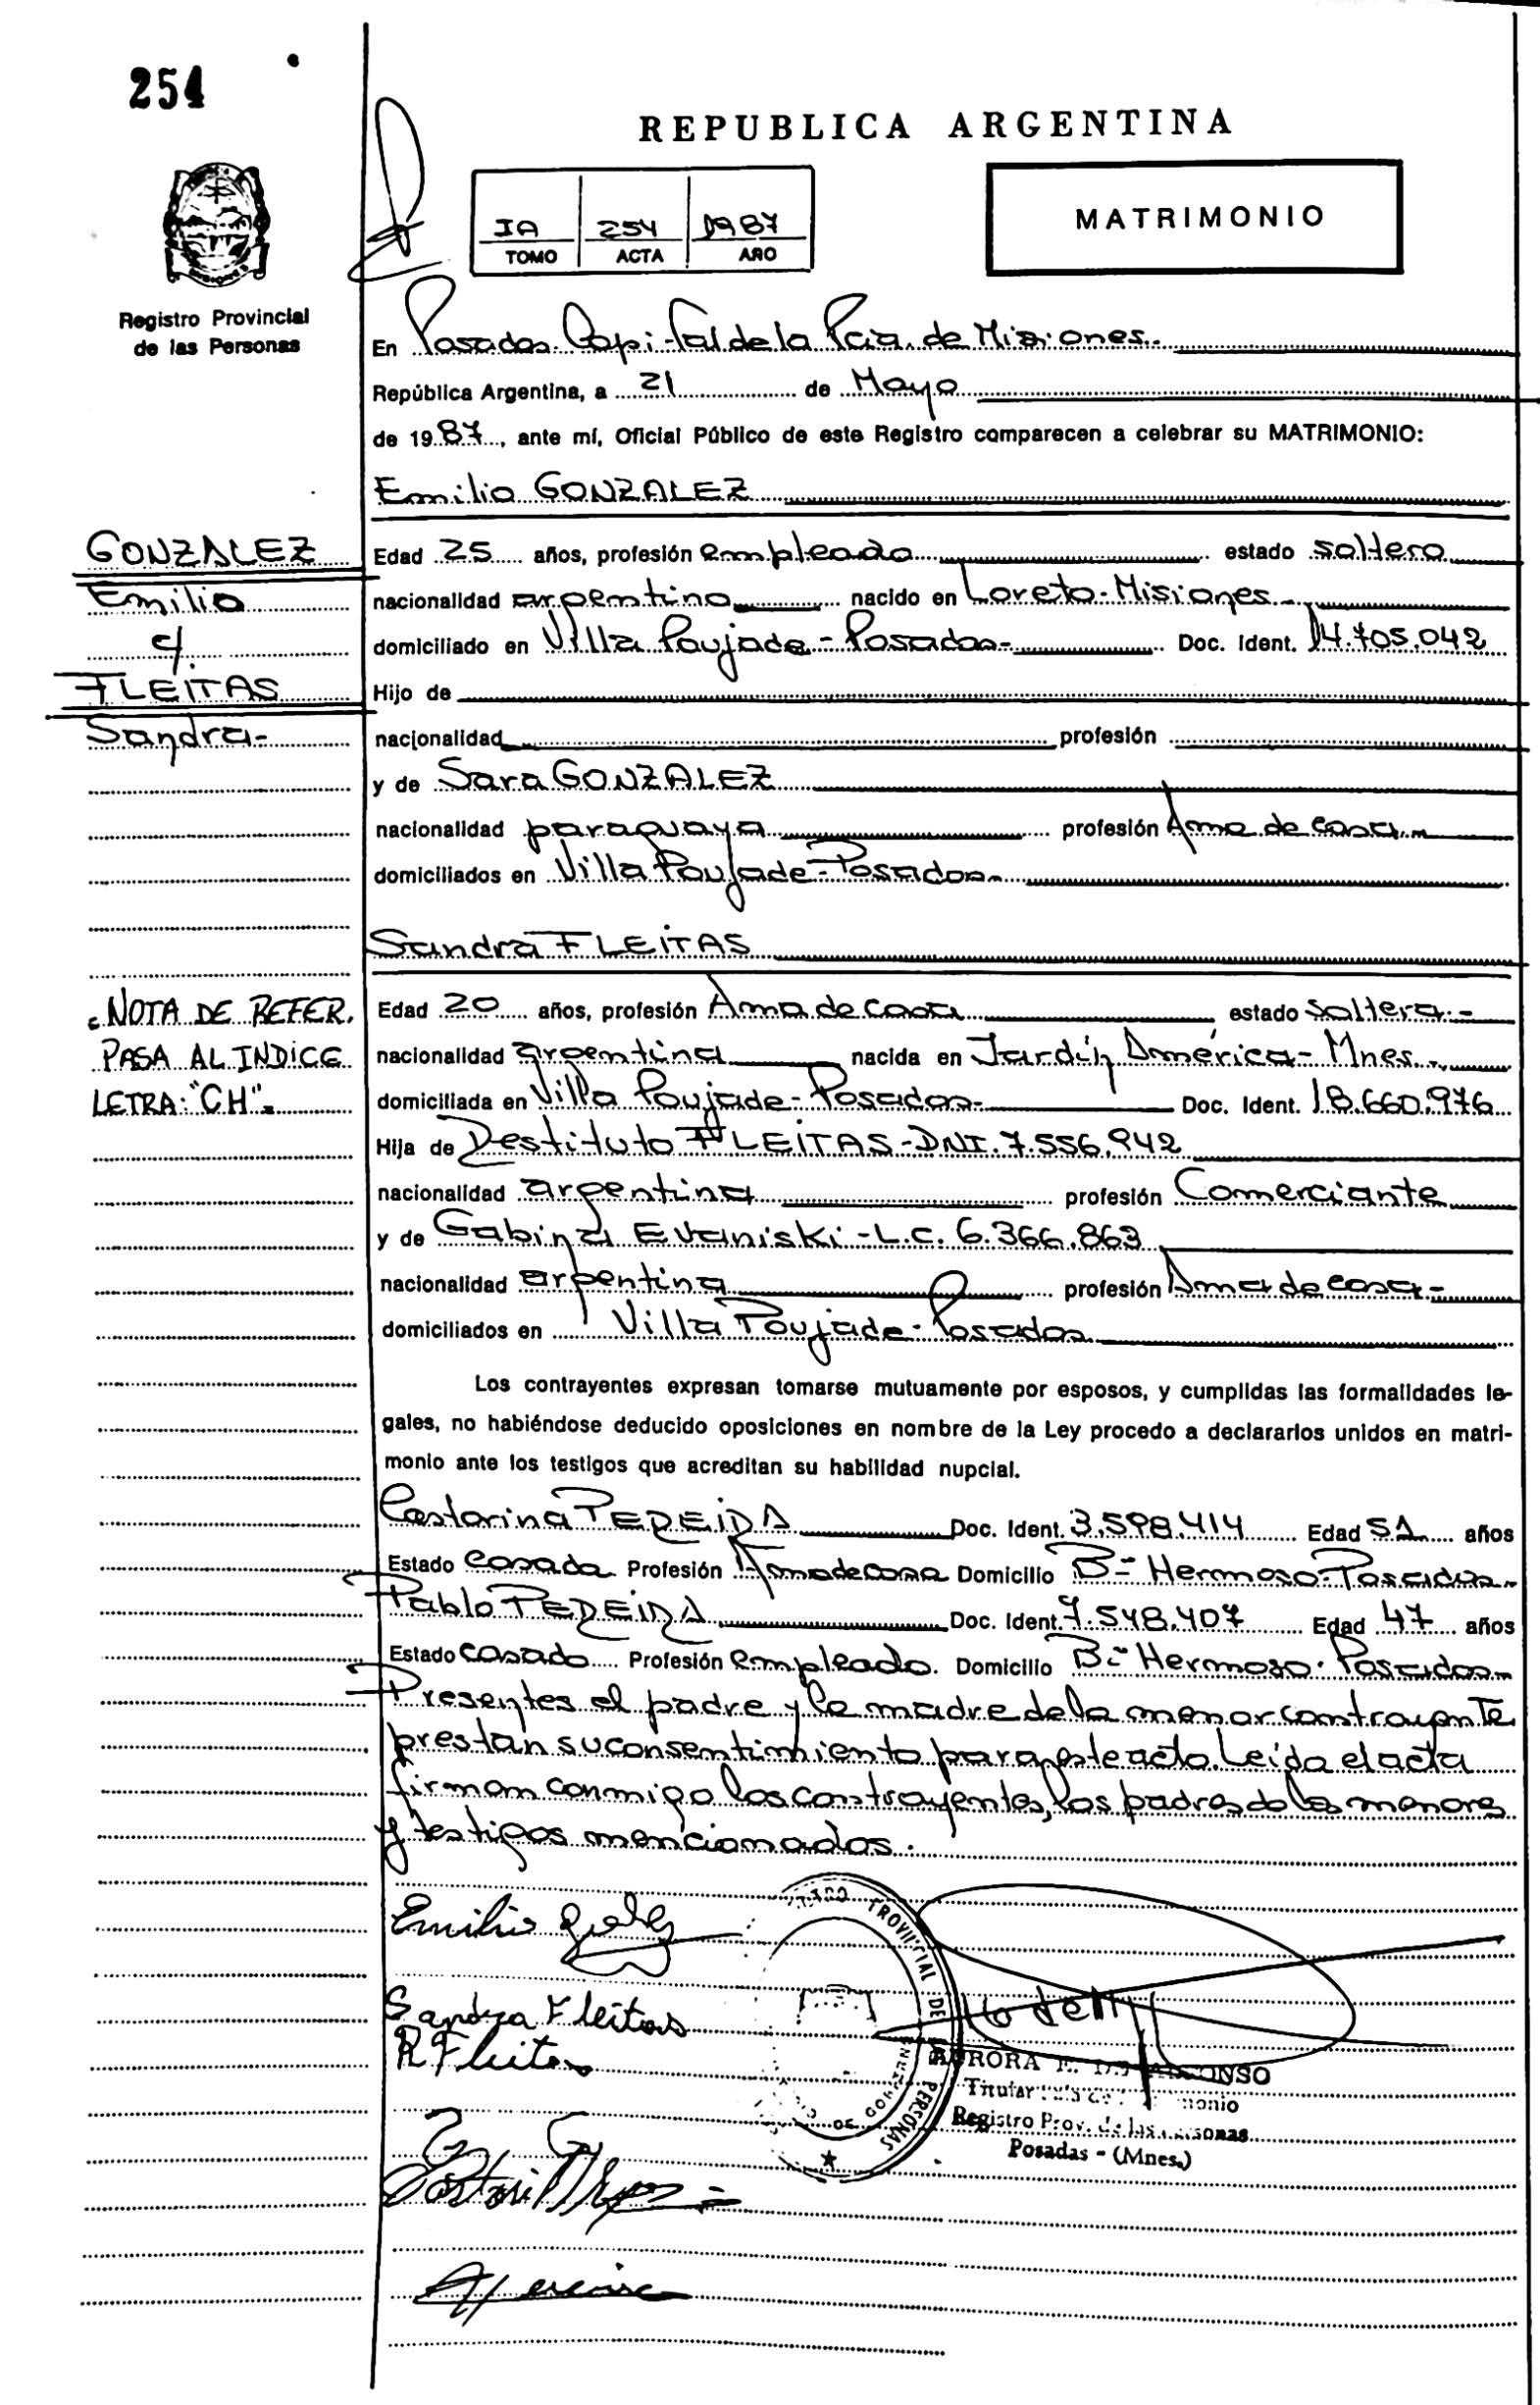 254
REPUBLICA ARGENTINA
IA 254 1987
TOMO ACTA AÑO
MATRIMONIO
Registro Provincial
de las Personas
En Posadas Capital de la Pcia. de Misiones.
República Argentina, a 21 de Mayo
de 1987, ante mí, Oficial Público de este Registro comparecen a celebrar su MATRIMONIO:
Emilio GONZALEZ
GONZALEZ
Emilio
c/
FLEITAS
Sandra-
Edad 25 años, profesión empleado estado soltero
nacionalidad argentino nacido en Loreto-Misiones-
domiciliado en Villa Poujade-Posadas- Doc. Ident. 14.705.042
Hijo de
nacionalidad profesión
y de Sara GONZALEZ
nacionalidad paraguaya profesión Ama de casa
domiciliados en Villa Poujade-Posadas-
Sandra FLEITAS
NOTA DE REFER.
PASA AL INDICE
LETRA: "CH".
Edad 20 años, profesión Ama de casa estado soltera-
nacionalidad argentina nacida en Jardín América- Mnes.
domiciliada en Villa Poujade-Posadas- Doc. Ident. 18.660.976
Hija de Restituto FLEITAS-DNI.7.556.942
nacionalidad argentina profesión Comerciante
y de Gabina Evaniski-L.C. 6.366.863
nacionalidad argentina profesión Ama de casa-
domiciliados en Villa Poujade-Posadas
Los contrayentes expresan tomarse mutuamente por esposos, y cumplidas las formalidades le-
gales, no habiéndose deducido oposiciones en nombre de la Ley procedo a declararlos unidos en matri-
monio ante los testigos que acreditan su habilidad nupcial.
Castorina PEREIRA Doc. Ident. 3.598.414 Edad 51 años
Estado casada Profesión Ama de casa Domicilio B- Hermoso-Posadas-
Pablo PEREIRA Doc. Ident. 7.548.407 Edad 47 años
Estado casado Profesión empleado. Domicilio B- Hermoso-Posadas-
Presentes el padre y la madre de la menor contrayente
prestan su consentimiento para este acto. Leída el acta
firman conmigo los contrayentes, los padres de los menores
y testigos mencionados.
Emilio
Sandra Fleitas
R Fleitas
PROVINCIAL DE PERSONAS
AURORA E.
Titular
Registro Prov. de las Personas
Posadas - (Mnes.)